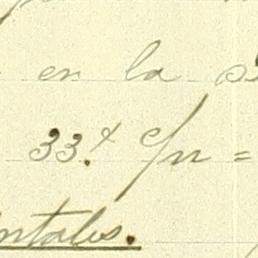 en la
33. c/n =
ntales.